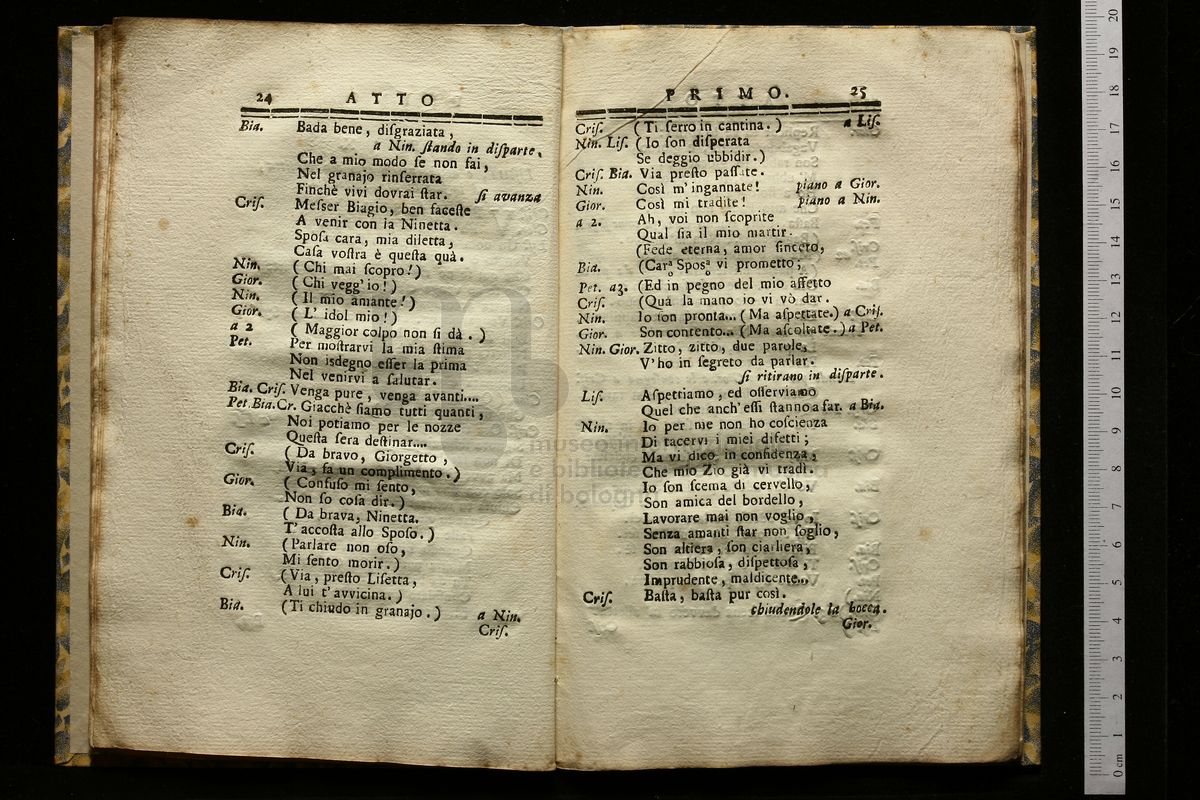 24 ATTO
Bia. Bada bene, diſgraziata,
a Nin. ſtando in diſparte.
Che a mio modo ſe non fai,
Nel granajo rinſerrata
Finchè vivi dovrai ſtar. ſi avanza
Criſ. Meſſer Biagio, ben faceſte
A venir con la Ninetta.
Spoſa cara, mia diletta,
Caſa voſtra è queſta quà.
Nin. (Chi mai ſcopro!)
Gior. (Chi vegg' io!)
Nin. (Il mio amante!)
Gior. (L' idol mio!)
a 2 (Maggior colpo non ſi dà.)
Pet. Per moſtrarvi la mia ſtima
Non isdegno eſſer la prima
Nel venirvi a ſalutar.
Bia. Criſ. Venga pure, venga avanti....
Pet. Bia. Cr. Giacchè ſiamo tutti quanti,
Noi potiamo per le nozze
Queſta ſera deſtinar....
Criſ. (Da bravo, Giorgetto,
Via, fa un complimento.)
Gior. (Confuſo mi ſento,
Non ſo coſa dir.)
Bia. (Da brava, Ninetta.
T' accoſta allo Spoſo.)
Nin. (Parlare non oſo,
Mi ſento morir.)
Criſ. (Via, preſto Liſetta,
A lui t' avvicina.)
Bia. (Ti chiudo in granajo.) a Nin.
Criſ.
PRIMO. 25
Criſ. (Ti ſerro in cantina.) a Liſ.
Nin. Liſ. (Io ſon diſperata
Se deggio ubbidir.)
Criſ. Bia. Via preſto paſſate.
Nin. Così m' ingannate! piano a Gior.
Gior. Così mi tradite! piano a Nin.
a 2. Ah, voi non ſcoprite
Qual ſia il mio martir.
(Fede eterna, amor ſincero,
Bia. (Cara Spoſa vi prometto;
o o
Pet. a3. (Ed in pegno del mio affetto
Criſ. (Quà la mano io vi vò dar.
Nin. Io ſon pronta... (Ma aſpettate.) a Criſ.
Gior. Son contento... (Ma aſcoltate.) a Pet.
Nin. Gior. Zitto, zitto, due parole,
V' ho in ſegreto da parlar.
ſi ritirano in diſparte.
Liſ. Aſpettiamo, ed oſſerviamo
Quel che anch' eſſi ſtanno a far. a Bia.
Nin. Io per me non ho coſcienza
Di tacervi i miei difetti;
Ma vi dico in confidenza,
Che mio Zio già vi tradì.
Io ſon ſcema di cervello,
Son amica del bordello,
Lavorare mai non voglio,
Senza amanti ſtar non ſoglio,
Son altiera, ſon ciarliera,
Son rabbioſa, diſpettoſa,
Imprudente, maldicente...
Criſ. Baſta, baſta pur così.
chiudendole la bocca.
Gior.
museo
e bibliote
di bologn
0 cm 1 2 3 4 5 6 7 8 9 10 11 12 13 14 15 16 17 18 19 20